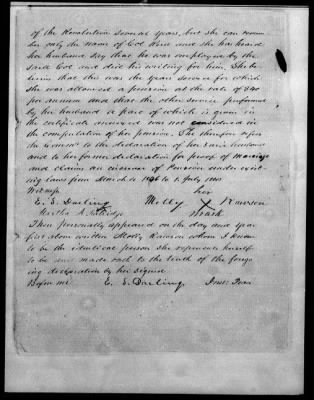 of the Revolution several years, but she can remem
ber only the name of Col Reed and she has heard
her husband say that he was employed by the
said Col and did his writing for him. She be
lieves that this was the years service for which
she was allowed a pension at the rate of $40
per annum and that the other service performed
by her husband a piece of which is given in
the certificate received was not considered in
the computation of her pension. She therefore refers
the to the declaration of her husband
and to her former declaration for proof of marriage
and claims an increase of Pension under exist
ing laws from March 4 to July
Witness her
E. E. Darling Molly X Rawson
Martha A mark
Then personally appeared on the day and year
first above written Molly Rawson whom I know
to be the identical person she represents herself
to be and made oath to the truth of the forego
ing declaration by her signed
Before me E. E. Darling Just. Peace